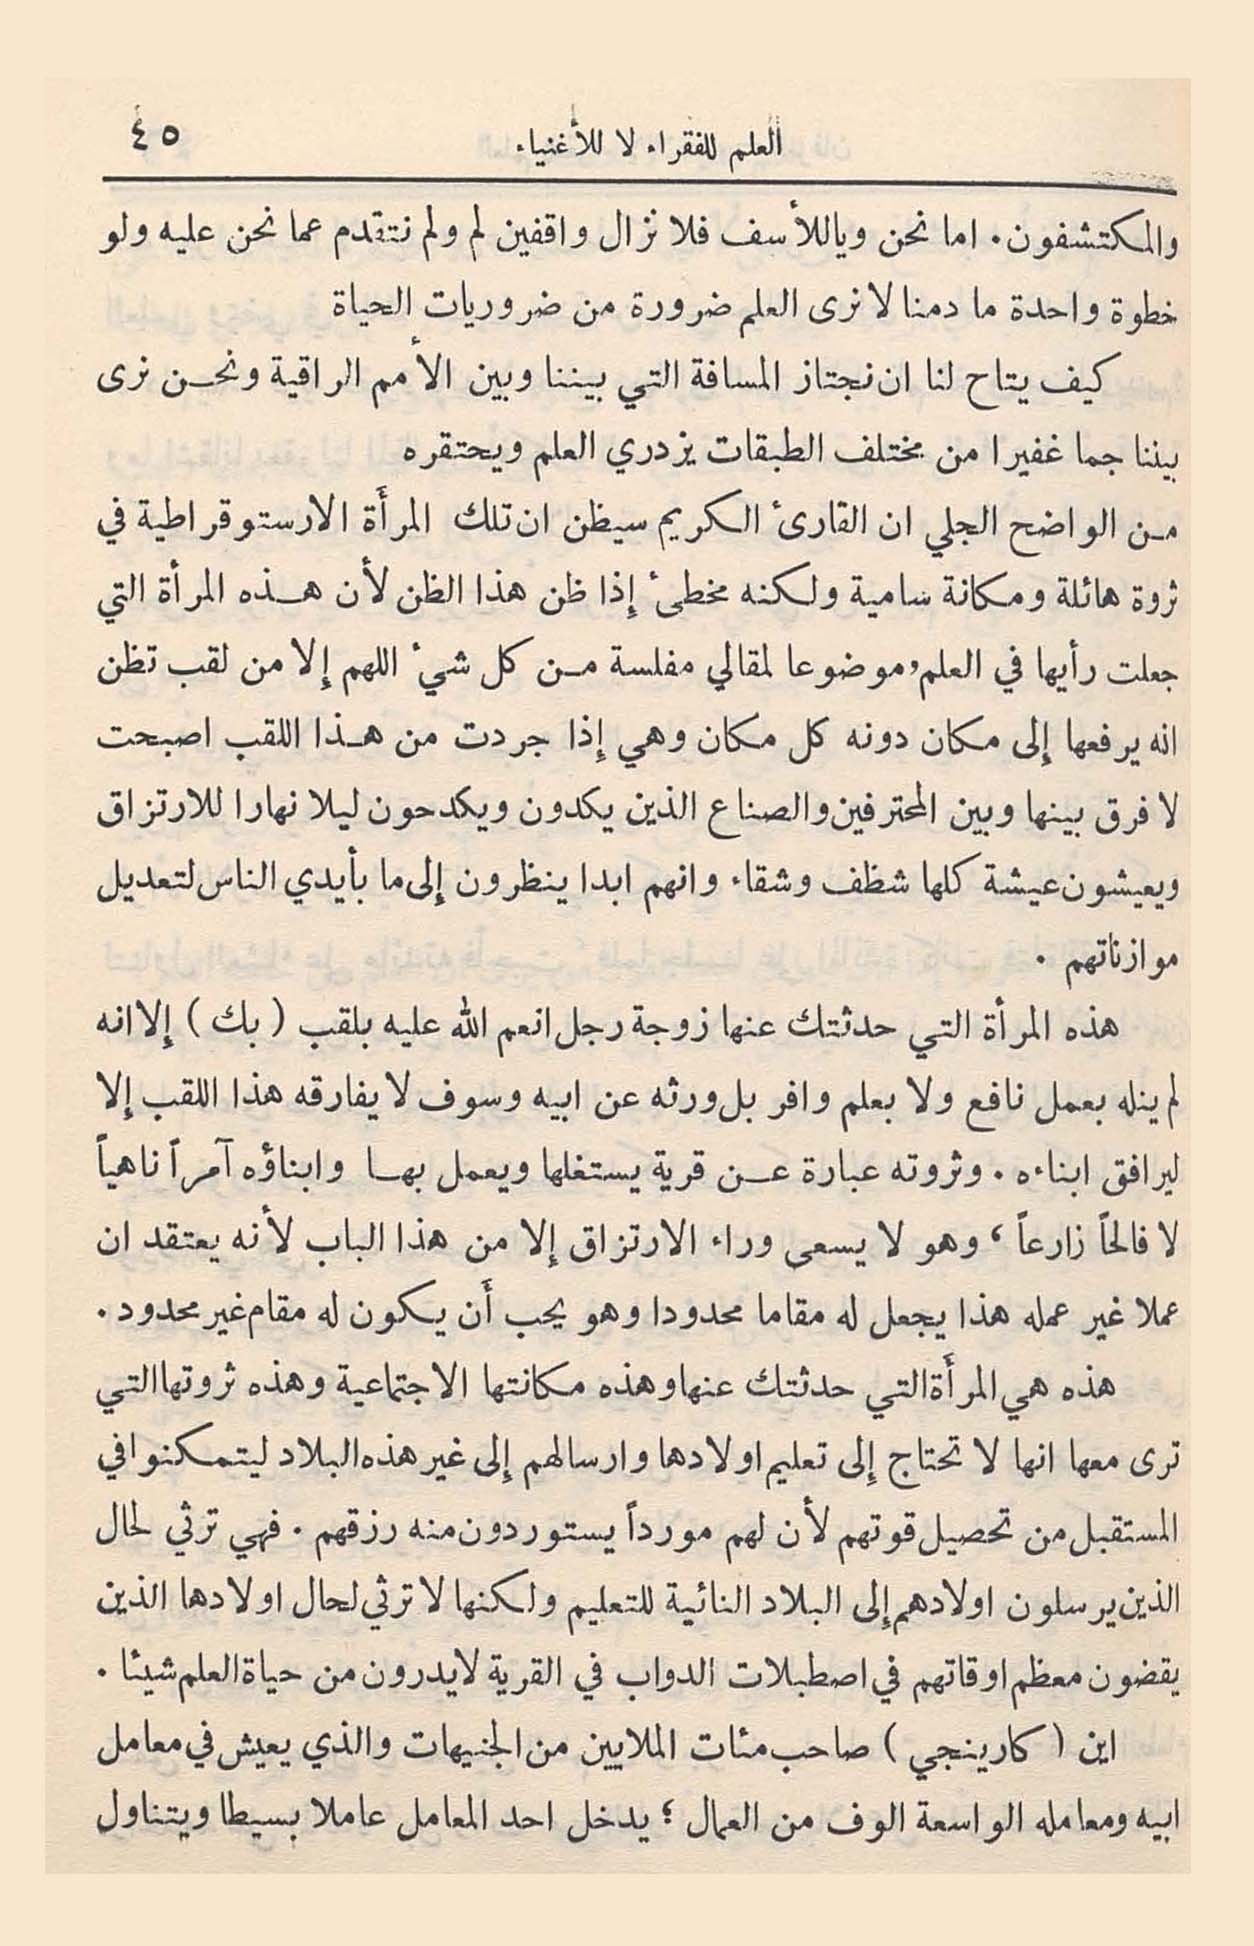 العلم للفقراء لا للأغنياء ٤٥
والمكتشفون. اما نحن وياللأسف فلا نزال واقفين لم ولم نتقدم عما نحن عليه ولو
خطوة واحدة ما دمنا لا نرى العلم ضرورة من ضروريات الحياة
كيف يتاح لنا ان نجتاز المسافة التي بيننا وبين الأمم الراقية ونحن نرى
بيننا جما غفيرا من مختلف الطبقات يزدري العلم ويحتقره
من الواضح الجلي ان القارئ الكريم سيظن ان تلك المرأة الارستوقراطية في
ثروة هائلة ومكانة سامية ولكنه مخطئ إذا ظن هذا الظن لأن هذه المرأة التي
جعلت رأيها في العلم وموضوعا لمقالي مفلسة من كل شيء اللهم إلا من لقب تظن
انه يرفعها إلى مكان دونه كل مكان وهي إذا جردت من هذا اللقب اصبحت
لا فرق بينها وبين المحترفين والصناع الذين يكدون ويكدحون ليلا نهارا للارتزاق
ويعيشون عيشة كلها شظف وشقاء وانهم ابدا ينظرون إلى ما بأيدي الناس لتعديل
موازناتهم .
هذه المرأة التي حدثتك عنها زوجة رجل انعم الله عليه بلقب ( بك ) إلا انه
لم ينله بعمل نافع ولا بعلم وافر بل ورثه عن ابيه وسوف لا يفارقه هذا اللقب إلا
ليرافق ابناءه . وثروته عبارة عن قرية يستغلها ويعمل بها وابناؤه آمراً ناهياً
لا فالحاً زارعاً ، وهو لا يسعى وراء الارتزاق إلا من هذا الباب لأنه يعتقد ان
عملا غير عمله هذا يجعل له مقاما محدودا وهو يحب أن يكون له مقام غير محدود .
هذه هي المرأة التي حدثتك عنها وهذه مكانتها الاجتماعية وهذه ثروتها التي
ترى معها انها لا تحتاج إلى تعليم اولادها وارسالهم إلى غير هذه البلاد ليتمكنوا في
المستقبل من تحصيل قوتهم لأن لهم مورداً يستوردون منه رزقهم . فهي ترثي لحال
الذين يرسلون اولادهم إلى البلاد النائية للتعليم ولكنها لا ترثي لحال اولادها الذين
يقضون معظم اوقاتهم في اصطبلات الدواب في القرية لا يدرون من حياة العلم شيئا .
اين ( كارينجي ) صاحب مئات الملايين من الجنيهات والذي يعيش في معامل
ابيه ومعامله الواسعة الوف من العمال ؛ يدخل احد المعامل عاملا بسيطا ويتناول